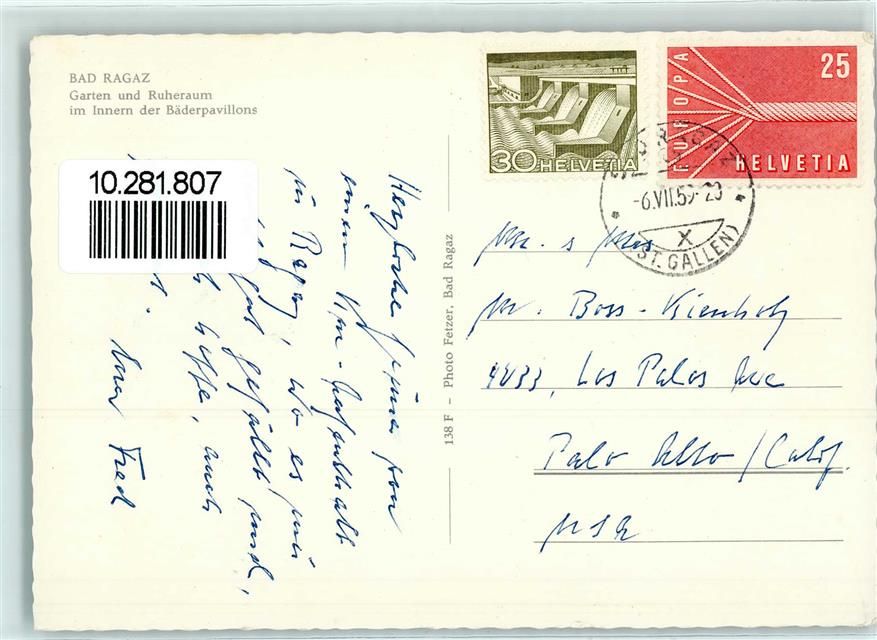 BAD RAGAZ
Garten und Ruheraum
im Innern der Bäderpavillons
10.281.807
30 HELVETIA
EUROPA
25
HELVETIA
RAGAZ
-6.VII.59-20
X
(ST. GALLEN)
Herzliche Grüsse von
einem Kur-Aufenthalt
in Ragaz, wo es mir
gut gefällt und,
hoffe, auch
Euer Fred
138 F – Photo Fetzer, Bad Ragaz
Mr. & Mrs
M. Boss-Kienholz
4233, Los Palos Ave
Palo Alto / Calif.
USA